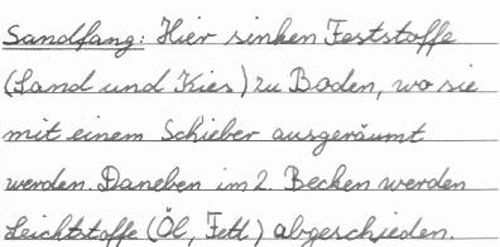 Sandfang: Hier sinken Feststoffe
(Sand und Kies) zu Boden, wo sie
mit einem Schieber ausgeräumt
werden. Daneben im 2. Becken werden
Leichtstoffe (Öl, Fett) abgeschieden.